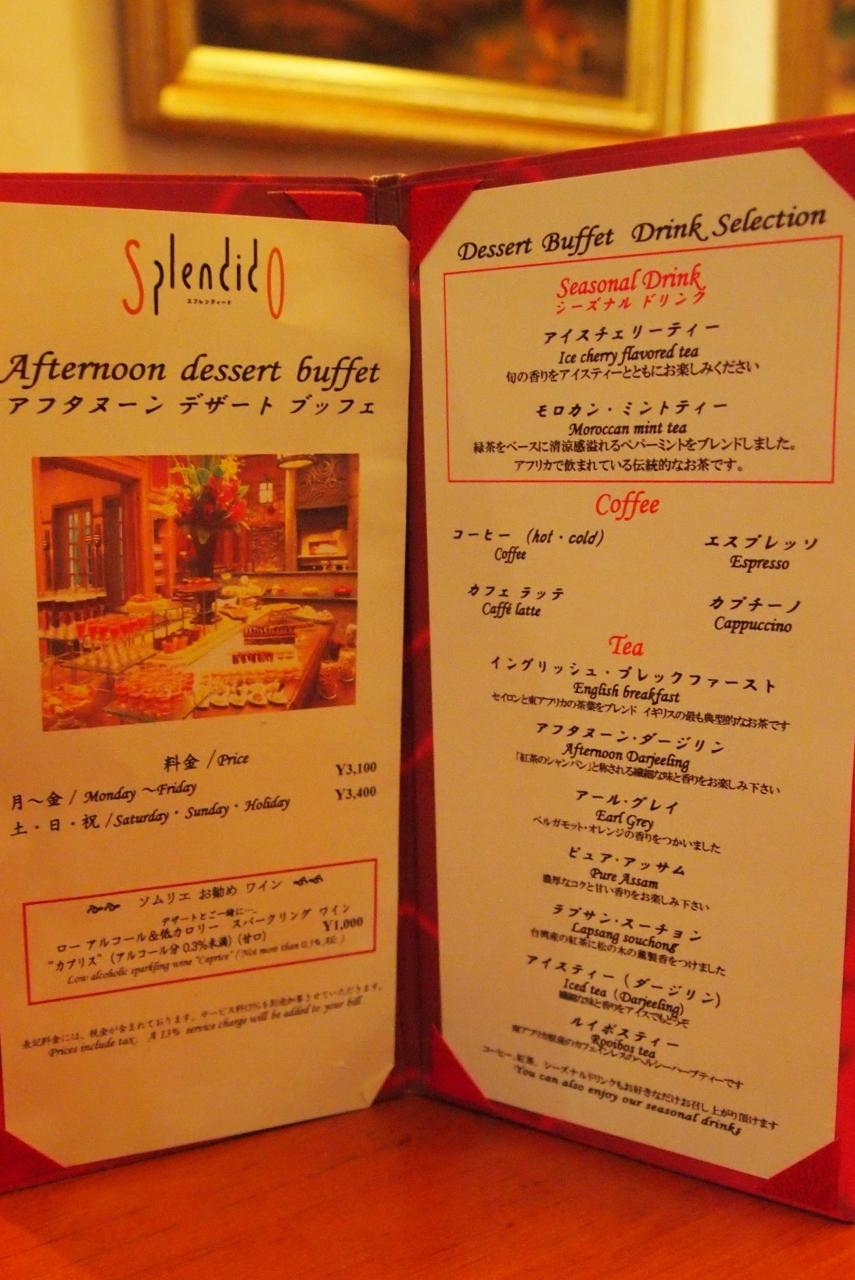 Splendido
スプレンディード
Afternoon dessert buffet
アフタヌーン デザート ブッフェ
料金 / Price
月～金 / Monday ～Friday ¥3,100
土・日・祝 / Saturday・Sunday・Holiday ¥3,400
ソムリエ お勧め ワイン
デザートとご一緒に…、
ロー アルコール＆低カロリー スパークリング ワイン
“カプリス” (アルコール分 0.3%未満) (甘口) ¥1,000
Low alcoholic sparkling wine "Caprice" (Not more than 0.3% Alc.)
表記料金には、税金が含まれております。サービス料13%を別途加算させていただきます。
Prices include tax. A 13% service charge will be added to your bill
Dessert Buffet Drink Selection
Seasonal Drink
シーズナル ドリンク
アイスチェリーティー
Ice cherry flavored tea
旬の香りをアイスティーとともにお楽しみください
モロカン・ミントティー
Moroccan mint tea
緑茶をベースに清涼感溢れるペパーミントをブレンドしました。
アフリカで飲まれている伝統的なお茶です。
Coffee
コーヒー (hot・cold) エスプレッソ
Coffee Espresso
カフェ ラッテ カプチーノ
Caffé latte Cappuccino
Tea
イングリッシュ・ブレックファースト
English breakfast
セイロンと東アフリカの茶葉をブレンド イギリスの最も典型的なお茶です
アフタヌーン・ダージリン
Afternoon Darjeeling
「紅茶のシャンパン」と称される繊細な味と香りをお楽しみ下さい
アール・グレイ
Earl Grey
ベルガモット・オレンジの香りをつかいました
ピュア・アッサム
Pure Assam
濃厚なコクと甘い香りをお楽しみ下さい
ラプサン・スーチョン
Lapsang souchong
台湾産の紅茶に松の木の薫製香をつけました
アイスティー (ダージリン)
Iced tea (Darjeeling)
繊細な味と香りをアイスでもどうぞ
ルイボスティー
Rooibos tea
南アフリカ原産のカフェインレスのヘルシーハーブティーです
コーヒー、紅茶、シーズナルドリンクもお好きなだけお召し上がり頂けます
You can also enjoy our seasonal drinks